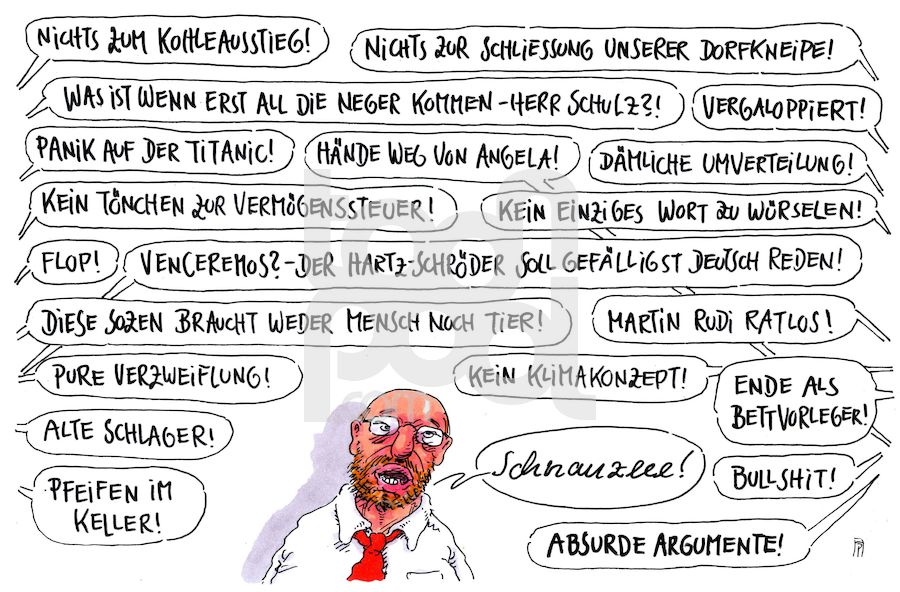 NICHTS ZUM KOHLEAUSSTIEG!
NICHTS ZUR SCHLIESSUNG UNSERER DORFKNEIPE!
WAS IST WENN ERST ALL DIE NEGER KOMMEN - HERR SCHULZ?!
VERGALOPPIERT!
PANIK AUF DER TITANIC!
HÄNDE WEG VON ANGELA!
DÄMLICHE UMVERTEILUNG!
KEIN TÖNCHEN ZUR VERMÖGENSSTEUER!
KEIN EINZIGES WORT ZU WÜRSELEN!
FLOP!
VENCEREMOS? - DER HARTZ-SCHRÖDER SOLL GEFÄLLIGST DEUTSCH REDEN!
DIESE SOZEN BRAUCHT WEDER MENSCH NOCH TIER!
MARTIN RUDI RATLOS!
PURE VERZWEIFLUNG!
KEIN KLIMAKONZEPT!
ENDE ALS
BETTVORLEGER!
ALTE SCHLAGER!
Schnauzeee!
BULLSHIT!
PFEIFEN IM
KELLER!
ABSURDE ARGUMENTE!